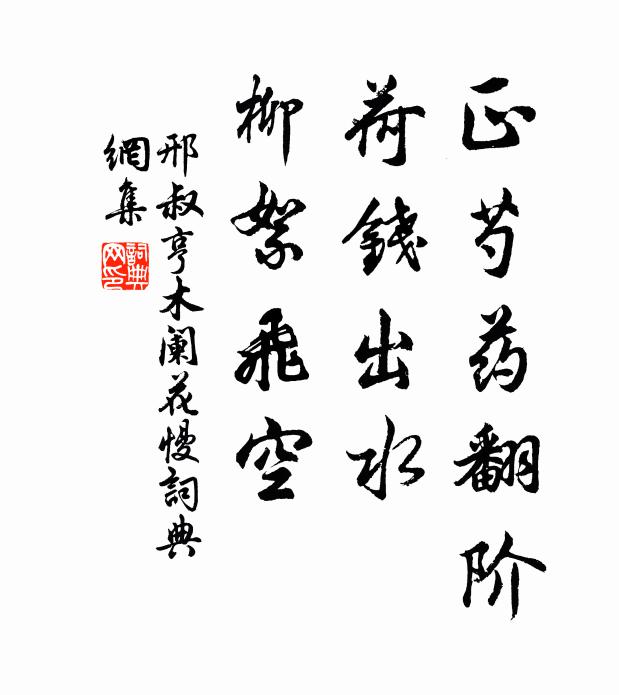 正芍药翻阶
荷錢出水
柳絮飛空
邢叔亨木阑花慢詞典
網集
詞典
网印